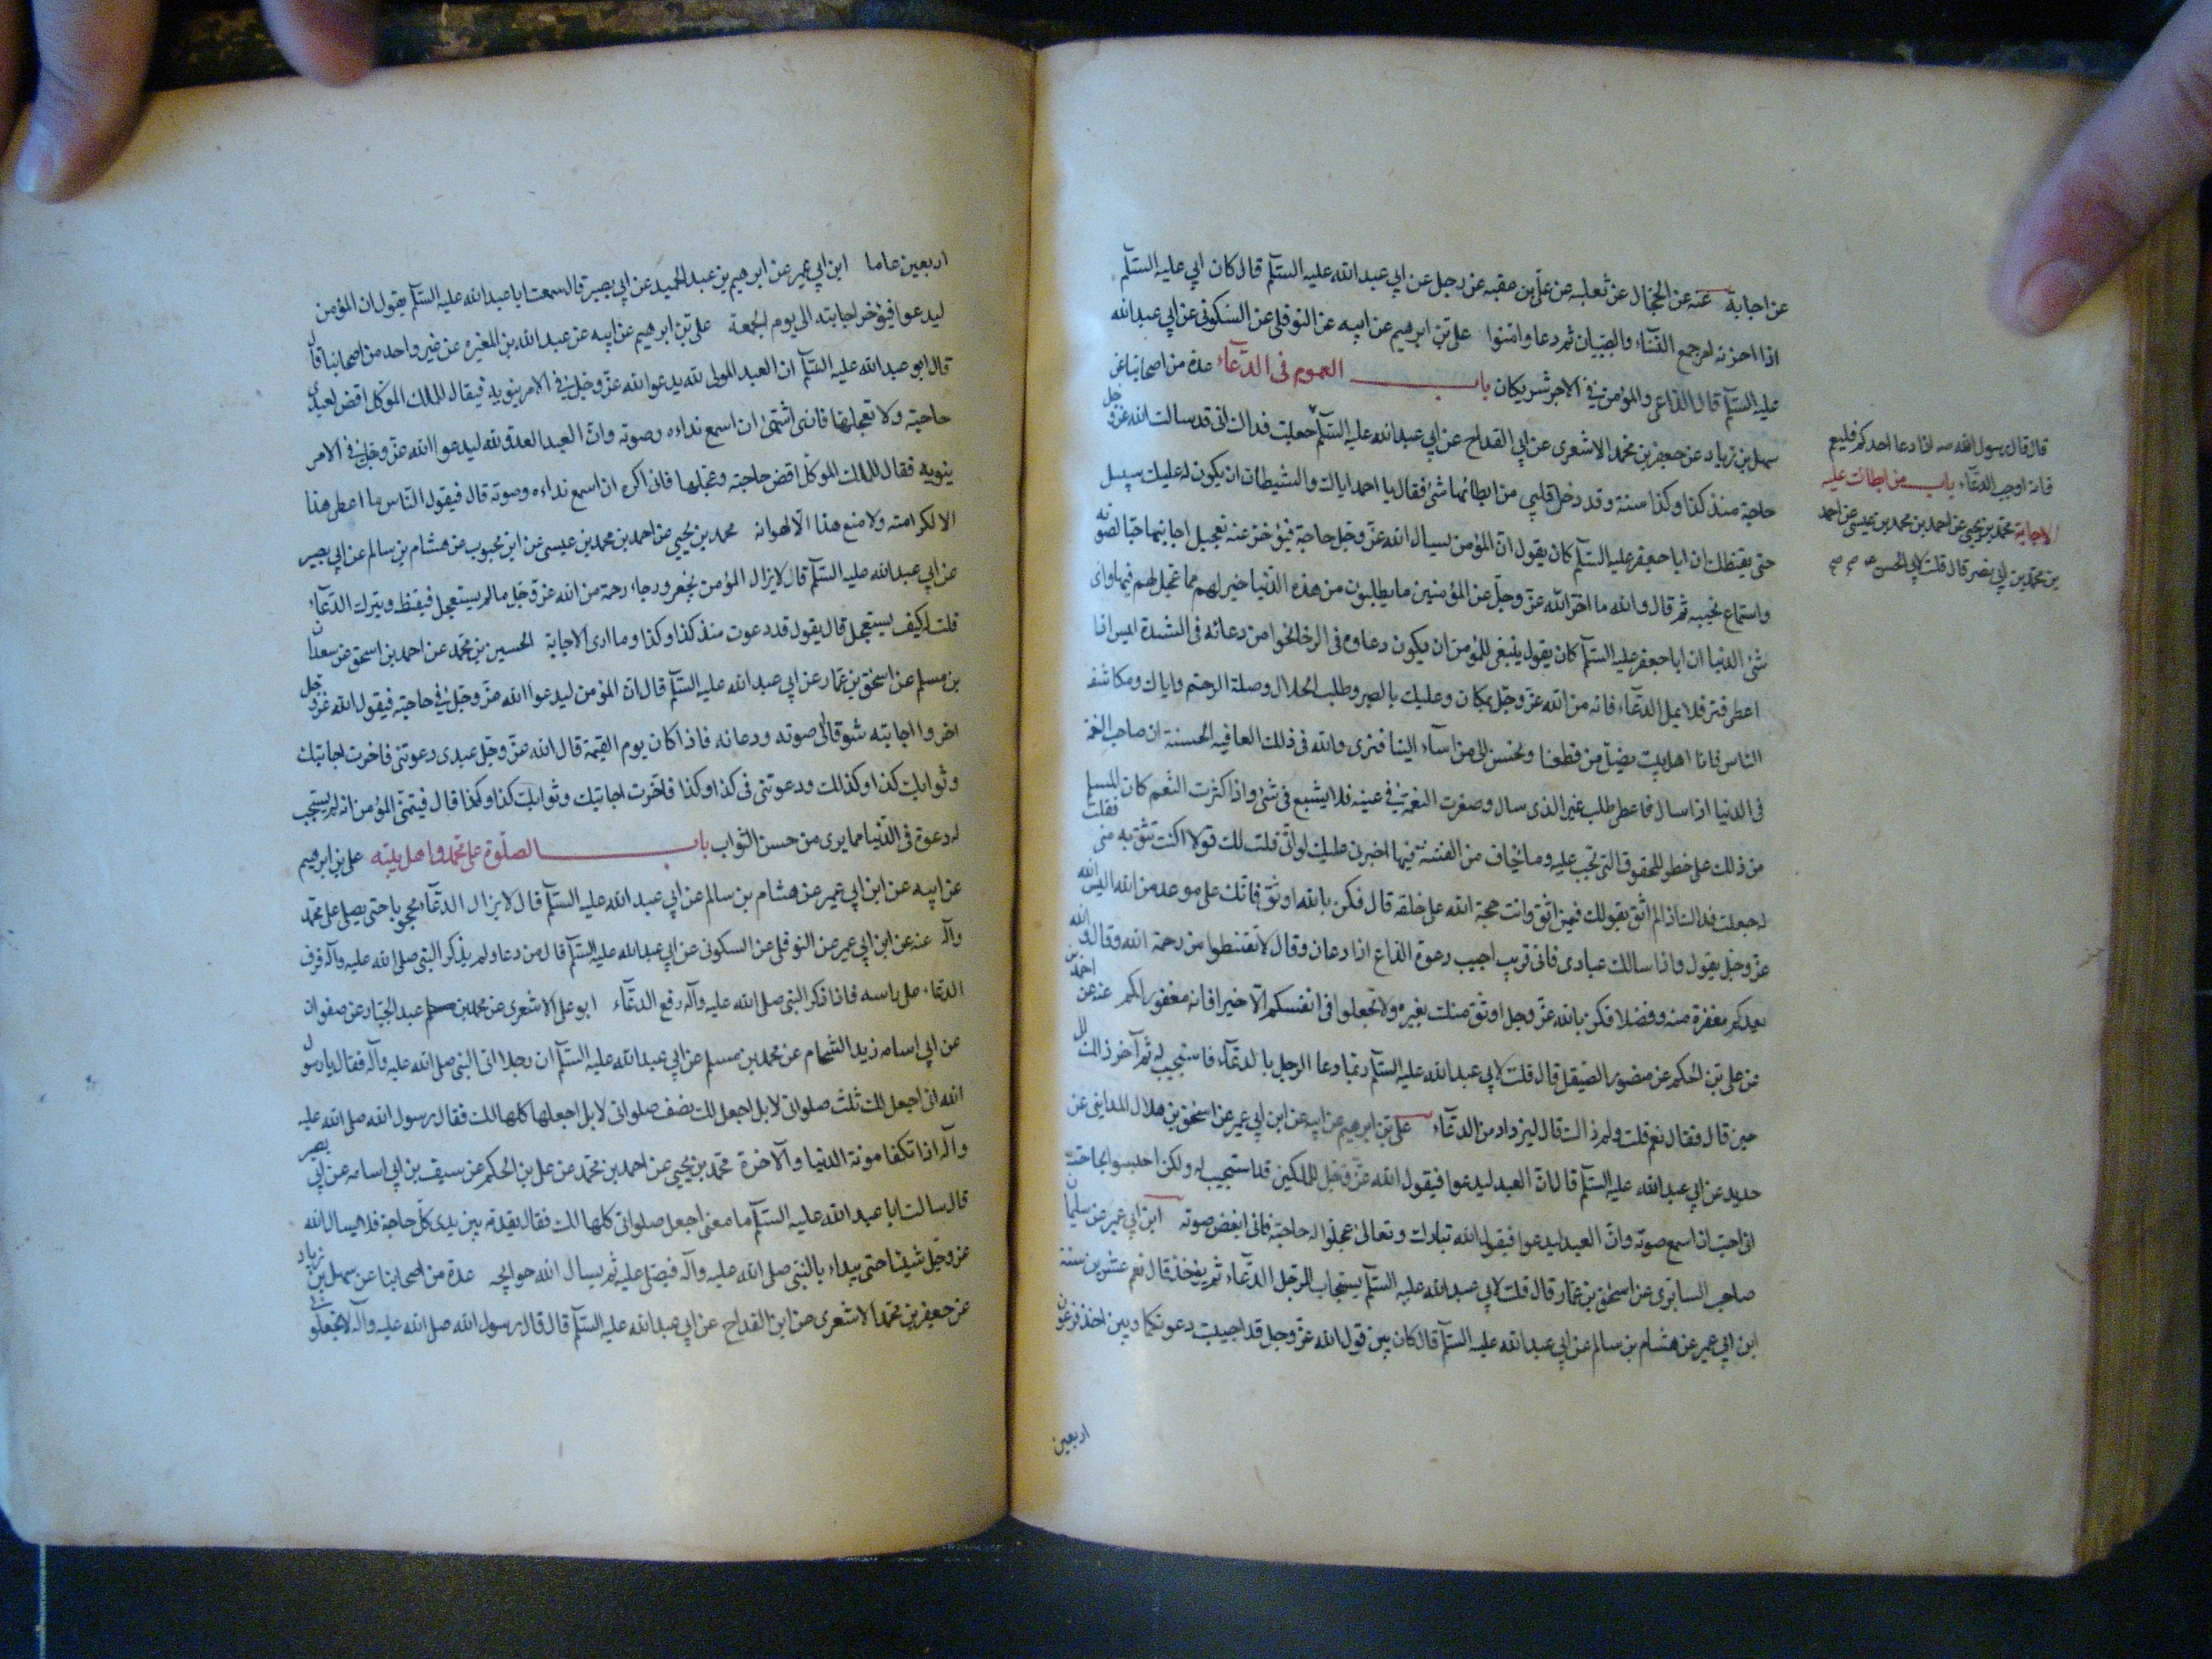 عن اجابة عنه عن الحجال عن ثعلبه عن علي بن عقبه عن رجل عن ابي عبد الله عليه السلم قال كان ابي عليه السلم
اذا احزنه امر جمع النساء والصبيان ثم دعا وامنوا علي بن ابرهيم عن ابيه عن النوفلي عن السكوني عن ابي عبد الله
عليه السلم قال الداعي والمؤمن في الاجر شريكان باب العموم في الدعاء عدة من اصحابنا عن
سهل بن زياد عن جعفر بن محمد الاشعري عن ابي القداح عن ابي عبد الله عليه السلم جعلت فداك اني قد سالت الله عز وجل
حاجة منذ كذا وكذا سنة وقد دخل قلبي من ابطائها شئ فقال يا احمد اياك والشيطان ان يكون له عليك سبيل
حتى يقنطك ان ابا جعفر عليه السلم كان يقول ان المؤمن يسال الله عز وجل حاجة فيؤخر عنه تعجيل اجابتها حبا لصوته
واستماع نحيبه ثم قال والله ما اخر الله عز وجل عن المؤمنين ما يطلبون من هذه الدنيا خير لهم مما عجل لهم فيها واي
شئ الدنيا ان ابا جعفر عليه السلم كان يقول ينبغي للمؤمن ان يكون دعاوه في الرخا نحوا من دعائه في الشدة ليس اذا
اعطي فتر فلا يمل الدعاء فانه من الله عز وجل بمكان وعليك بالصبر وطلب الحلال وصلة الرحم واياك ومكاشفه
الناس فانا اهل بيت نصل من قطعنا ونحسن الى من اسآء الينا فنرى والله في ذلك العافيه الحسنة ان صاحب النعمة
في الدنيا اذا سال فاعطي طلب غير الذي سال وصغرت النعمة في عينه فلا يشبع في شئ واذا كثرت النعم كان المسلم
من ذلك على خطر للحقوق التي تجب عليه وما يخاف من الفتنة فيها اخبرني عنك لو اني قلت لك قولا اكنت تثق به مني فقلت
له جعلت فداك اذا لم اثق بقولك فبمن اثق وانت حجة الله على خلقه قال فكن بالله اوثق فانك على موعد من الله اليس الله
عز وجل يقول واذا سالك عبادي فاني قريب اجيب دعوة الداع اذا دعان وقال لا تقنطوا من رحمة الله وقال والله
يعدكم مغفرة منه وفضلا فكن بالله عز وجل اوثق منك بغيره ولا تجعلوا في انفسكم الا خيرا فانه مغفور لكم عنه عن احمد بن
عن علي بن الحكم عن منصور الصيقل قال قلت لابي عبد الله عليه السلم ربما دعا الرجل بالدعآء فاستجيب له ثم آخر ذلك الى
حين قال فقال نعم قلت ولم ذاك قال ليزداد من الدعآء علي بن ابرهيم عن ابيه عن ابن ابي عمير عن اسحق بن هلال المدايني عن
حديد عن ابي عبد الله عليه السلم قال ان العبد ليدعوا فيقول الله عز وجل للملكين قد استجبت له ولكن احبسوا بحاجته
اني احب ان اسمع صوته وان العبد ليدعوا فيقول الله تبارك وتعالى عجلوا له حاجته فاني ابغض صوته ابن ابي عمير عن سليمان
صاحب السابري عن اسحق بن عمار قال قلت لابي عبد الله عليه السلم يستجاب للرجل الدعآء ثم يؤخر قال نعم عشرين سنة
ابن ابي عمير عن هشام بن سالم عن ابي عبد الله عليه السلم قال كان بين قول الله عز وجل قد اجيبت دعوتكما وبين اخذ فرعون
اربعين
قال قال رسول الله صه اذا دعا احدكم فليعم
فانه اوجب الدعآء باب من ابطات عليه
الاجابة محمد بن يحيى عن احمد بن محمد بن عيسى عن احمد
بن محمد بن ابي نصر قال قلت لابي الحسن ع صح صح
اربعين عاما ابن ابي عمير عن ابرهيم بن عبد الحميد عن ابي بصير قال سمعت ابا عبد الله عليه السلم يقول ان المؤمن
ليدعوا فيؤخر اجابته الى يوم الجمعة علي بن ابرهيم عن ابيه عن عبد الله بن المغيره عن غير واحد من اصحابنا قال
قال ابو عبد الله عليه السلم ان العبد المولى لله يدعو الله عز وجل في الامر ينوبه فيقال للملك الموكل اقض لعبدي
حاجته ولا تعجلها فانني اشتهي ان اسمع نداءه وصوته وان العبد العدو لله ليدعوا الله عز وجل في الامر
ينوبه فقال للملك الموكل اقض حاجته وعجلها فاني اكره ان اسمع نداءه وصوته قال فيقول الناس ما اعطي هذا
الا لكرامته ولا منع هذا الا لهوانه محمد بن يحيى عن احمد بن محمد بن عيسى عن ابن محبوب عن هشام بن سالم عن ابي بصير
عن ابي عبد الله عليه السلم قال لا يزال المؤمن بخير ورجاء رحمة من الله عز وجل ما لم يستعجل فيقنط ويترك الدعآء
قلت له كيف يستعجل قال يقول قد دعوت منذ كذا وكذا وما ارى الاجابة الحسين بن محمد عن احمد بن اسحق عن سعدان
بن مسلم عن اسحق بن عمار عن ابي عبد الله عليه السلم قال ان المؤمن ليدعوا الله عز وجل في حاجته فيقول الله عز وجل
اخروا اجابته شوقا الى صوته ودعائه فاذا كان يوم القيمة قال الله عز وجل عبدي دعوتني فاخرت اجابتك
وثوابك كذا وكذلك ودعوتني في كذا وكذا فاخرت اجابتك وثوابك كذا وكذا قال فيتمنى المؤمن انه لم يستجب
له دعوة في الدنيا مما يرى من حسن الثواب باب الصلوة على محمد واهل بيته علي بن ابرهيم
عن ابيه عن ابن ابي عمير عن هشام بن سالم عن ابي عبد الله عليه السلم قال لا يزال الدعآء محجوبا حتى يصلي على محمد
وآله عنه عن ابن ابي عمير عن النوفلي عن السكوني عن ابي عبد الله عليه السلم قال من دعا ولم يذكر النبي صلى الله عليه وآله فرف
الدعاء على راسه فاذا ذكر النبي صلى الله عليه وآله رفع الدعآء ابو علي الاشعري عن محمد بن عبد الجبار عن صفوان
عن ابي اسامه زيد الشحام عن محمد بن مسلم عن ابي عبد الله عليه السلم ان رجلا اتى النبي صلى الله عليه وآله فقال يا رسول
الله اني اجعل لك ثلث صلواتي لا بل اجعل لك نصف صلواتي لا بل اجعلها كلها لك فقال رسول الله صلى الله عليه
وآله اذا تكفا مونة الدنيا والآخرة محمد بن يحيى عن احمد بن محمد عن علي بن الحكم عن سيف بن ابي اسامه عن ابي بصير
قال سالت ابا عبد الله عليه السلم ما معنى اجعل صلواتي كلها لك فقال يقدمه بين يدي كل حاجة فلا يسال الله
عز وجل شيئا حتى يبداء بالنبي صلى الله عليه وآله فيصلي عليه ثم يسال الله حوايجه عدة من اصحابنا عن سهل بن زياد
عن جعفر بن محمد الاشعري عن ابن القداح عن ابي عبد الله عليه السلم قال قال رسول الله صلى الله عليه وآله لا تجعلوني